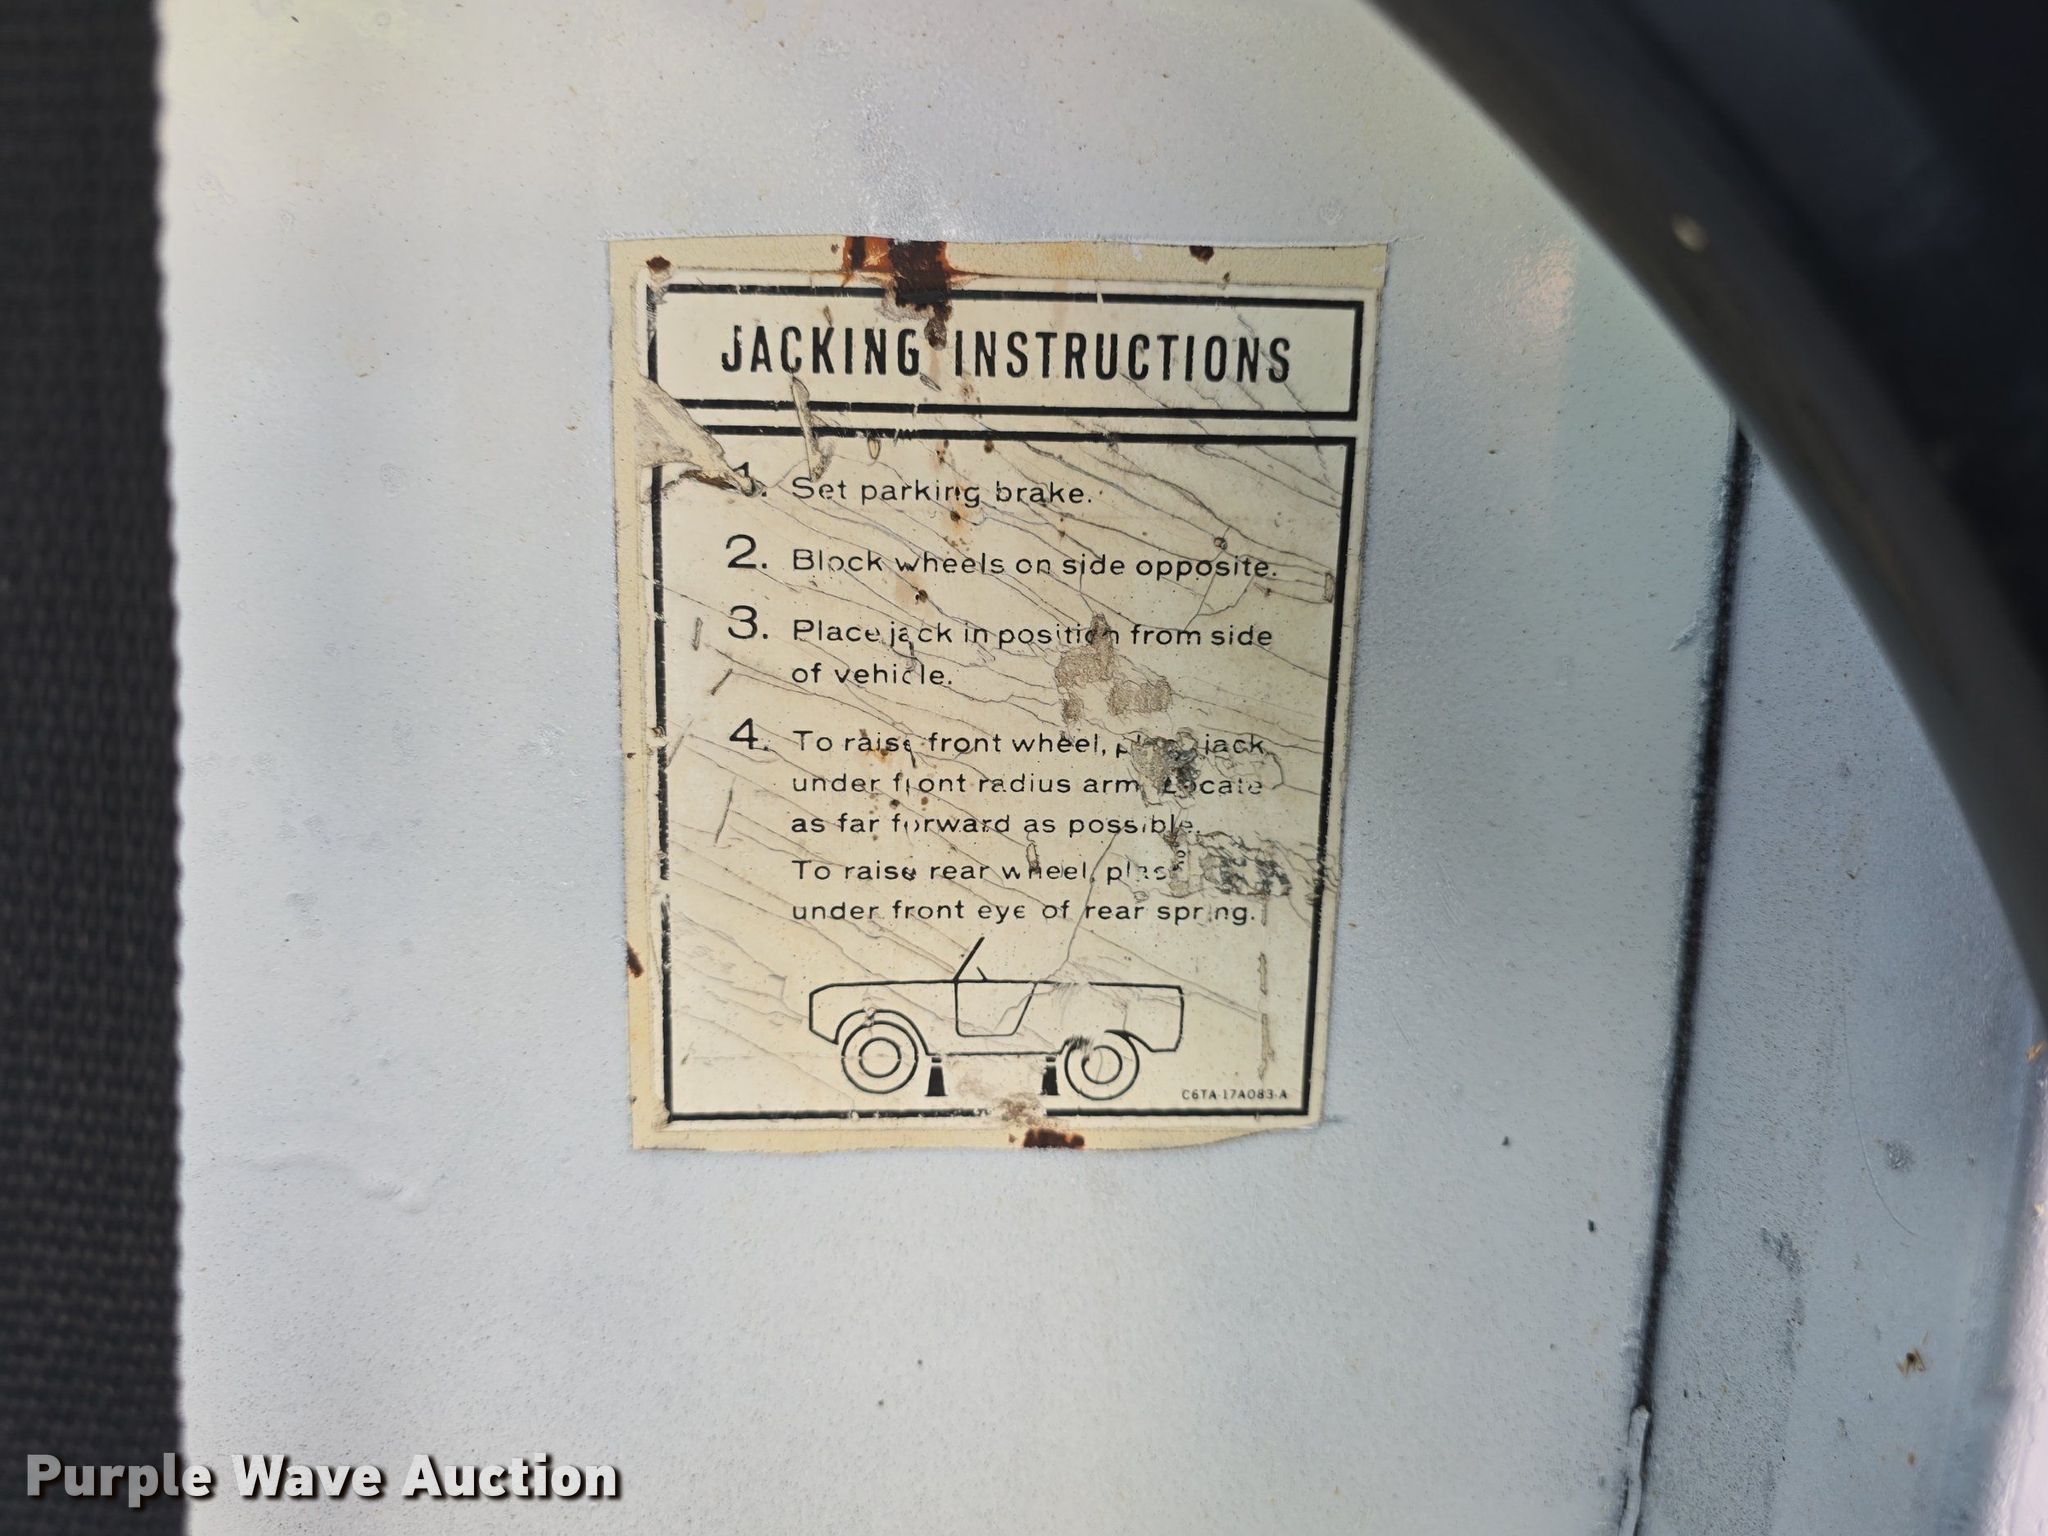 JACKING INSTRUCTIONS
1. Set parking brake.
2. Block wheels on side opposite.
3. Place jack in position from side
of vehicle.
4. To raise front wheel, place jack
under front radius arm. Locate
as far forward as possible.
To raise rear wheel,
under front eye of rear spring.
C6TA-17A083-A
Purple Wave Auction